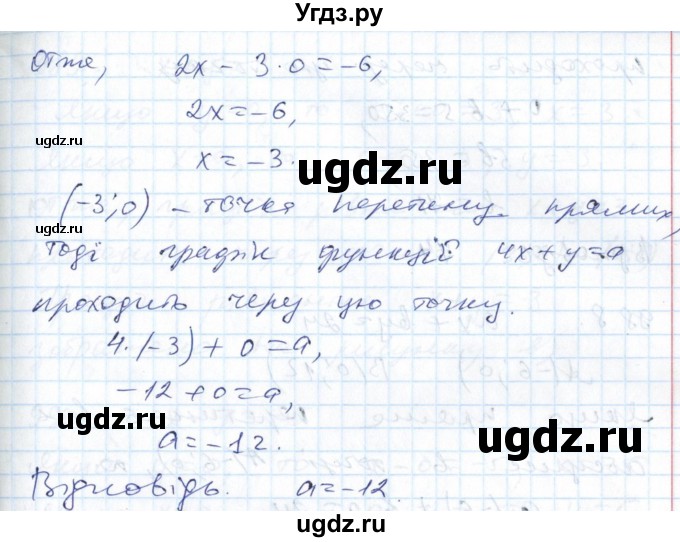 Угдз.ру
Отже, 2x - 3·0 = -6,
2x = -6,
ugdz.ru ugdz.ru
x = -3.
ugdz.ru
(-3; 0) - точка перетину прямих,
тоді графік функції 4x + y = a
проходить через цю точку.
4·(-3) + 0 = a,
-12 + 0 = a,
ugdz.ru ugdz.ru
a = -12.
Відповідь. a = -12.
ugdz.ru